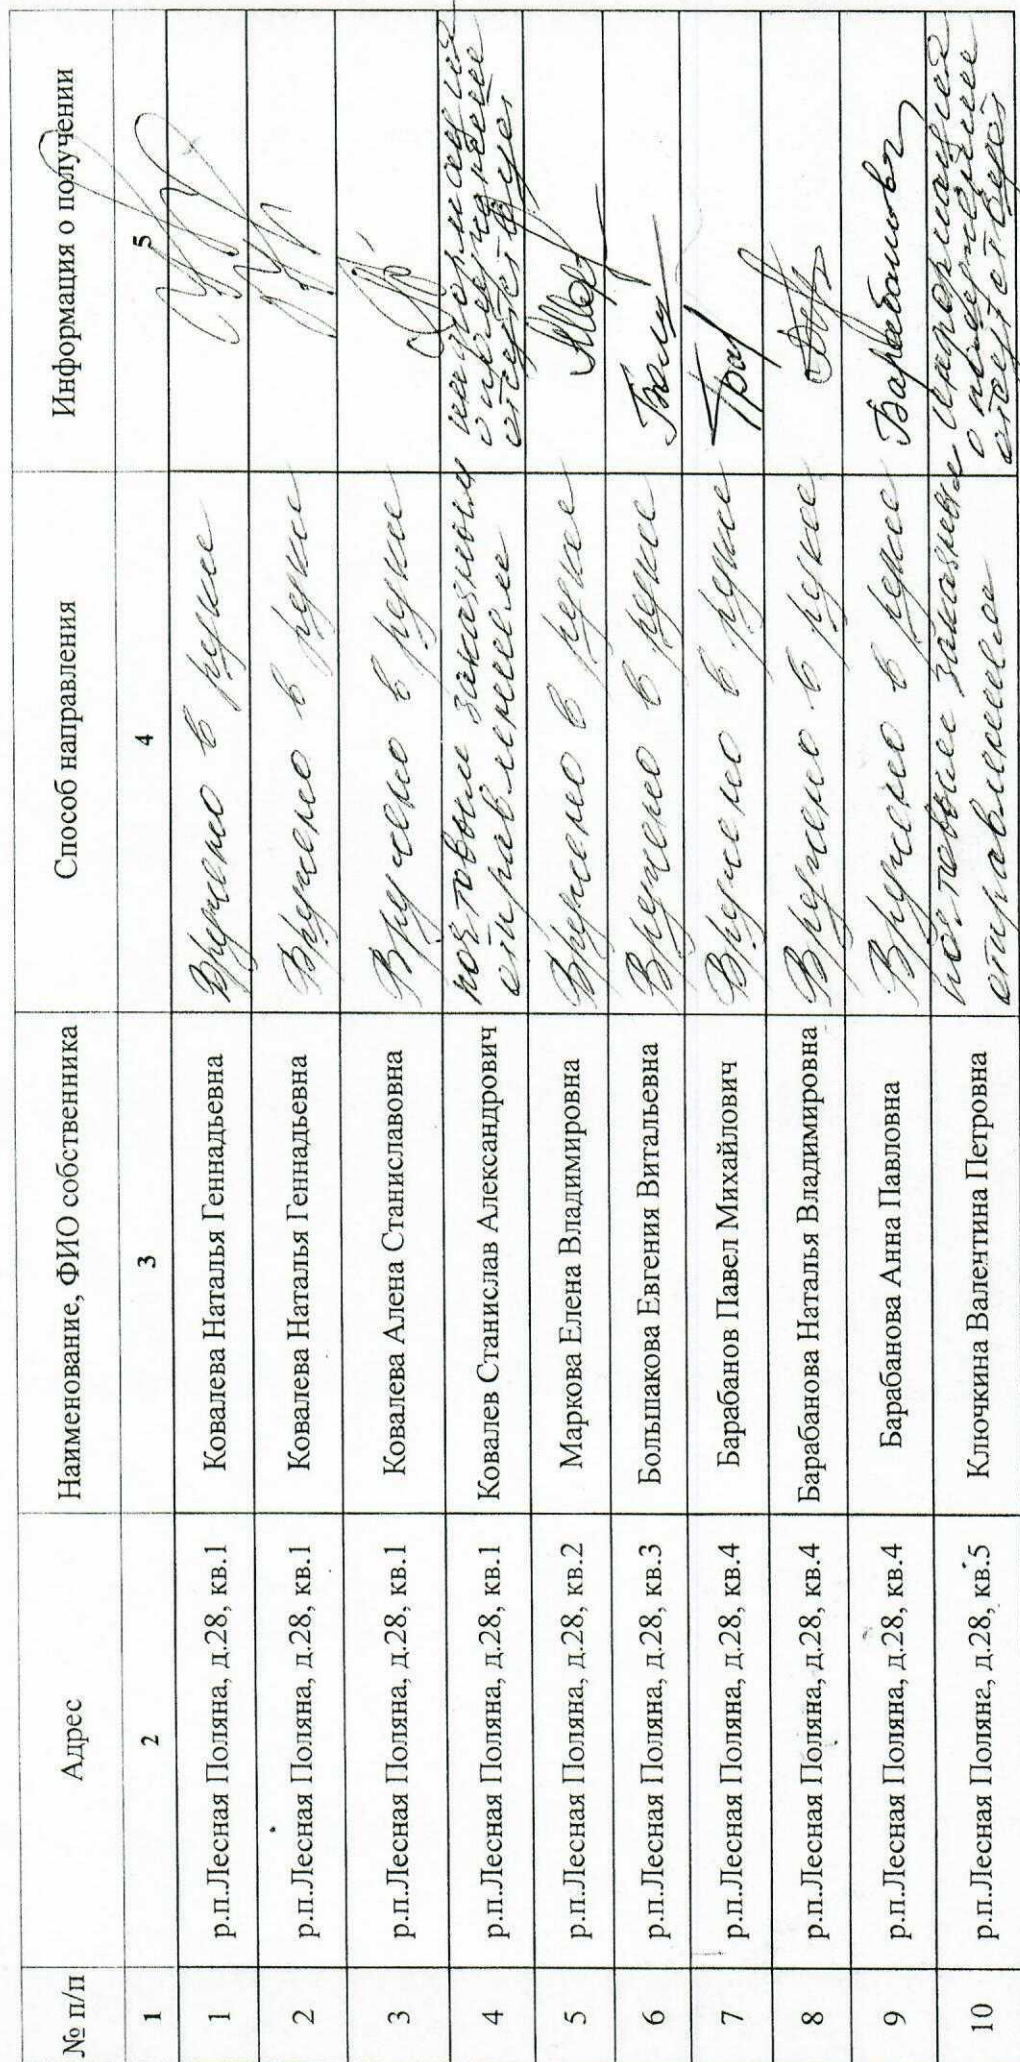 № п/п Адрес Наименование, ФИО собственника Способ направления Информация о получении
1 2 3 4 5
1 р.п.Лесная Поляна, д.28, кв.1 Ковалева Наталья Геннадьевна Вручено в руки
2 р.п.Лесная Поляна, д.28, кв.1 Ковалева Наталья Геннадьевна Вручено в руки
3 р.п.Лесная Поляна, д.28, кв.1 Ковалева Алена Станиславовна Вручено в руки
4 р.п.Лесная Поляна, д.28, кв.1 Ковалев Станислав Александрович почтовым заказным информация
отправлением о получении
отсутствует
5 р.п.Лесная Поляна, д.28, кв.2 Маркова Елена Владимировна Вручено в руки
6 р.п.Лесная Поляна, д.28, кв.3 Большакова Евгения Витальевна Вручено в руки
7 р.п.Лесная Поляна, д.28, кв.4 Барабанов Павел Михайлович Вручено в руки
8 р.п.Лесная Поляна, д.28, кв.4 Барабанова Наталья Владимировна Вручено в руки
9 р.п.Лесная Поляна, д.28, кв.4 Барабанова Анна Павловна Вручено в руки
10 р.п.Лесная Поляна, д.28, кв.5 Ключкина Валентина Петровна почтовым заказным информация
отправлением о получении
отсутствует